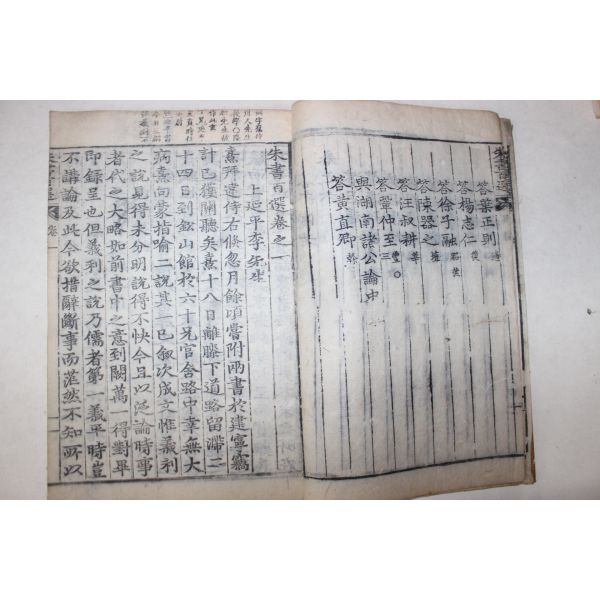 朱書百選
答葉正則適
答楊志仁復
答徐子融昭然
答陳器之埴
答汪叔耕莘
答董仲至三豐
與湖南諸公論中
答黃直卿榦
朱書百選卷之一
上延平李先生
熹拜違侍右倏忽月餘頃嘗附兩書於建寧竊
計已獲關聽矣熹十八日離膝下道路留滯二
十四日到鉛山館於六十兄官舍路中幸無大
病熹向蒙指喻二說其一已敘次成文惟義利
之說見得未分明說得不快今且以泛論時事
者代之大略如前書中之意到闕萬一得對畢
即錄呈也但義利之說乃儒者第一義平時豈
不講論及此今欲措辭斷事而茫然不知所以